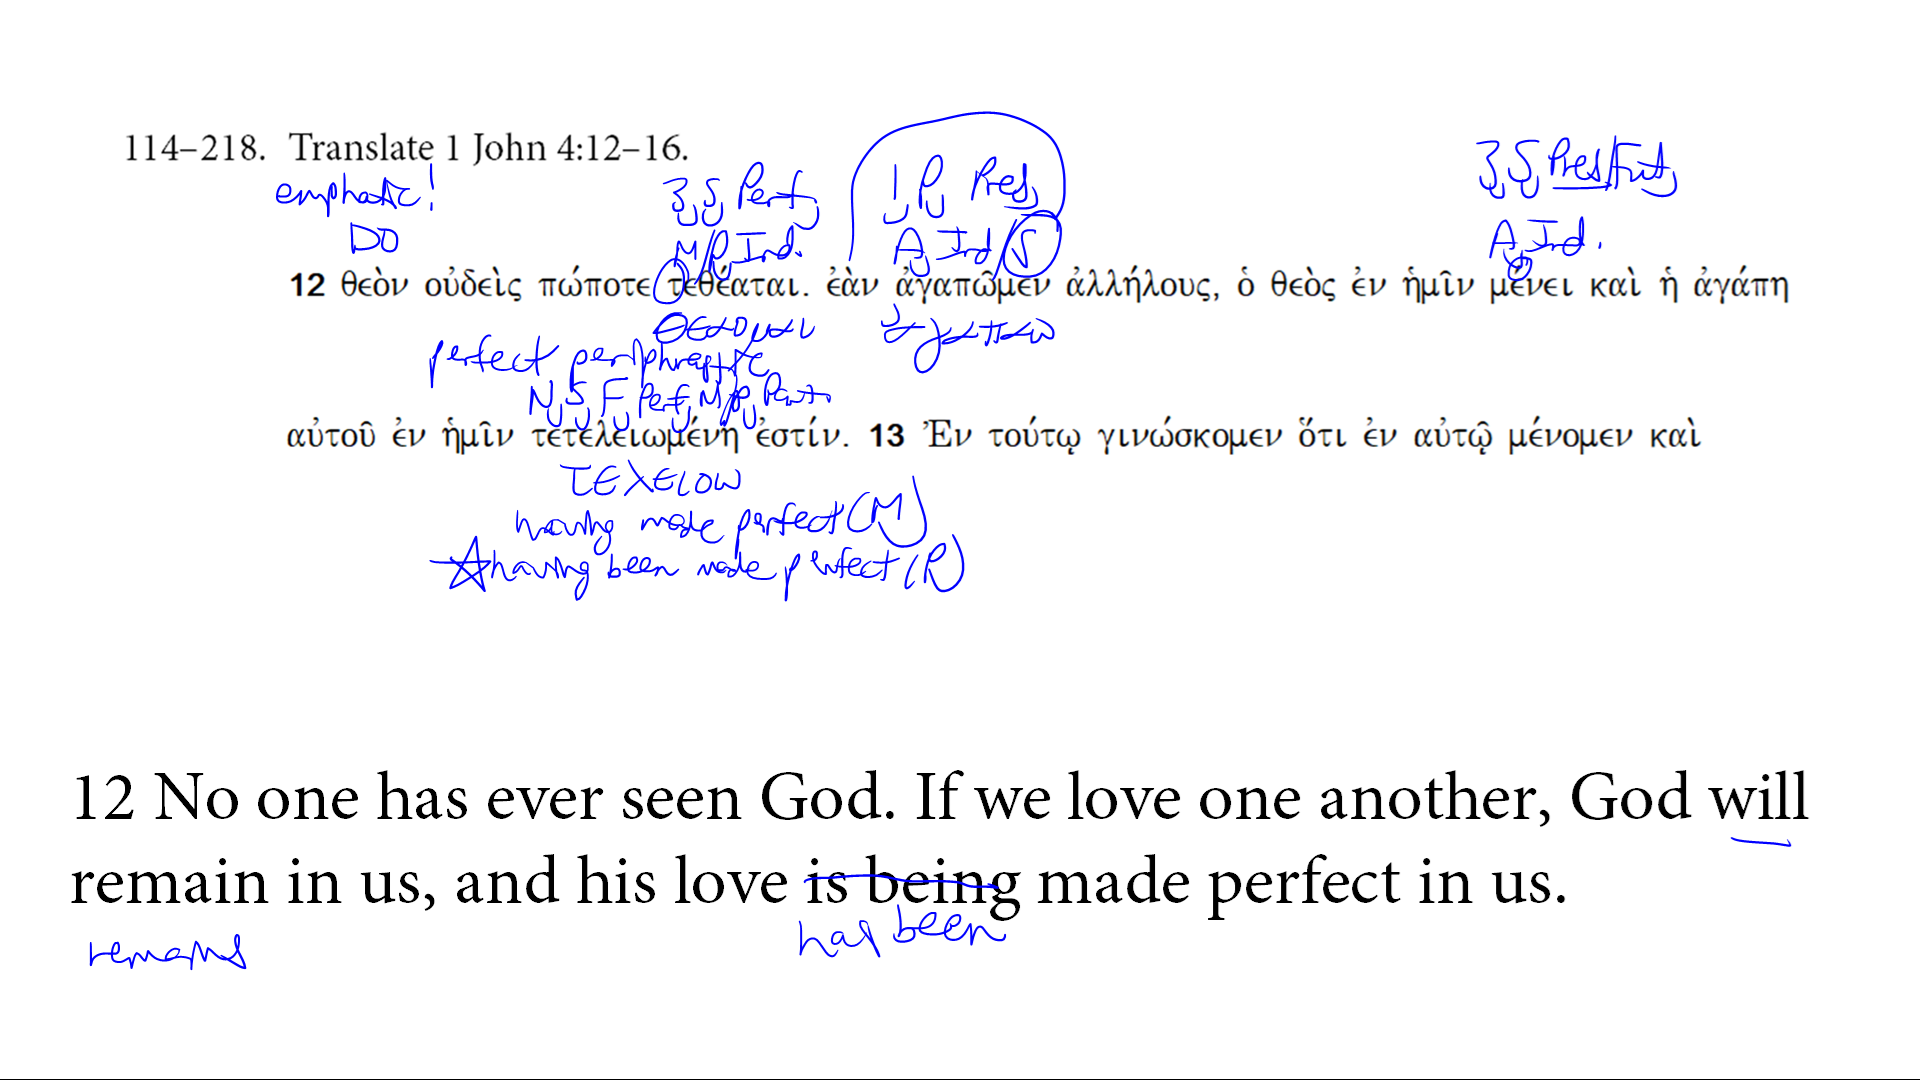 114–218. Translate 1 John 4:12–16.
emphatic!
DO
3, S, Perf,
M/P, Ind.
1, P, Pres,
A, Ind/S
3, S, Pres/Fut,
A, Ind.
12 θεὸν οὐδεὶς πώποτε τεθέαται. ἐὰν ἀγαπῶμεν ἀλλήλους, ὁ θεὸς ἐν ἡμῖν μένει καὶ ἡ ἀγάπη
θεαομαι
ἀγαπαω
perfect periphrastic
N, S, F, Perf, M/P, Part.
αὐτοῦ ἐν ἡμῖν τετελειωμένη ἐστίν. 13 Ἐν τούτῳ γινώσκομεν ὅτι ἐν αὐτῷ μένομεν καὶ
τελειοω
having made perfect (M)
having been made perfect (P)
12 No one has ever seen God. If we love one another, God will
remain in us, and his love is being made perfect in us.
remains
has been